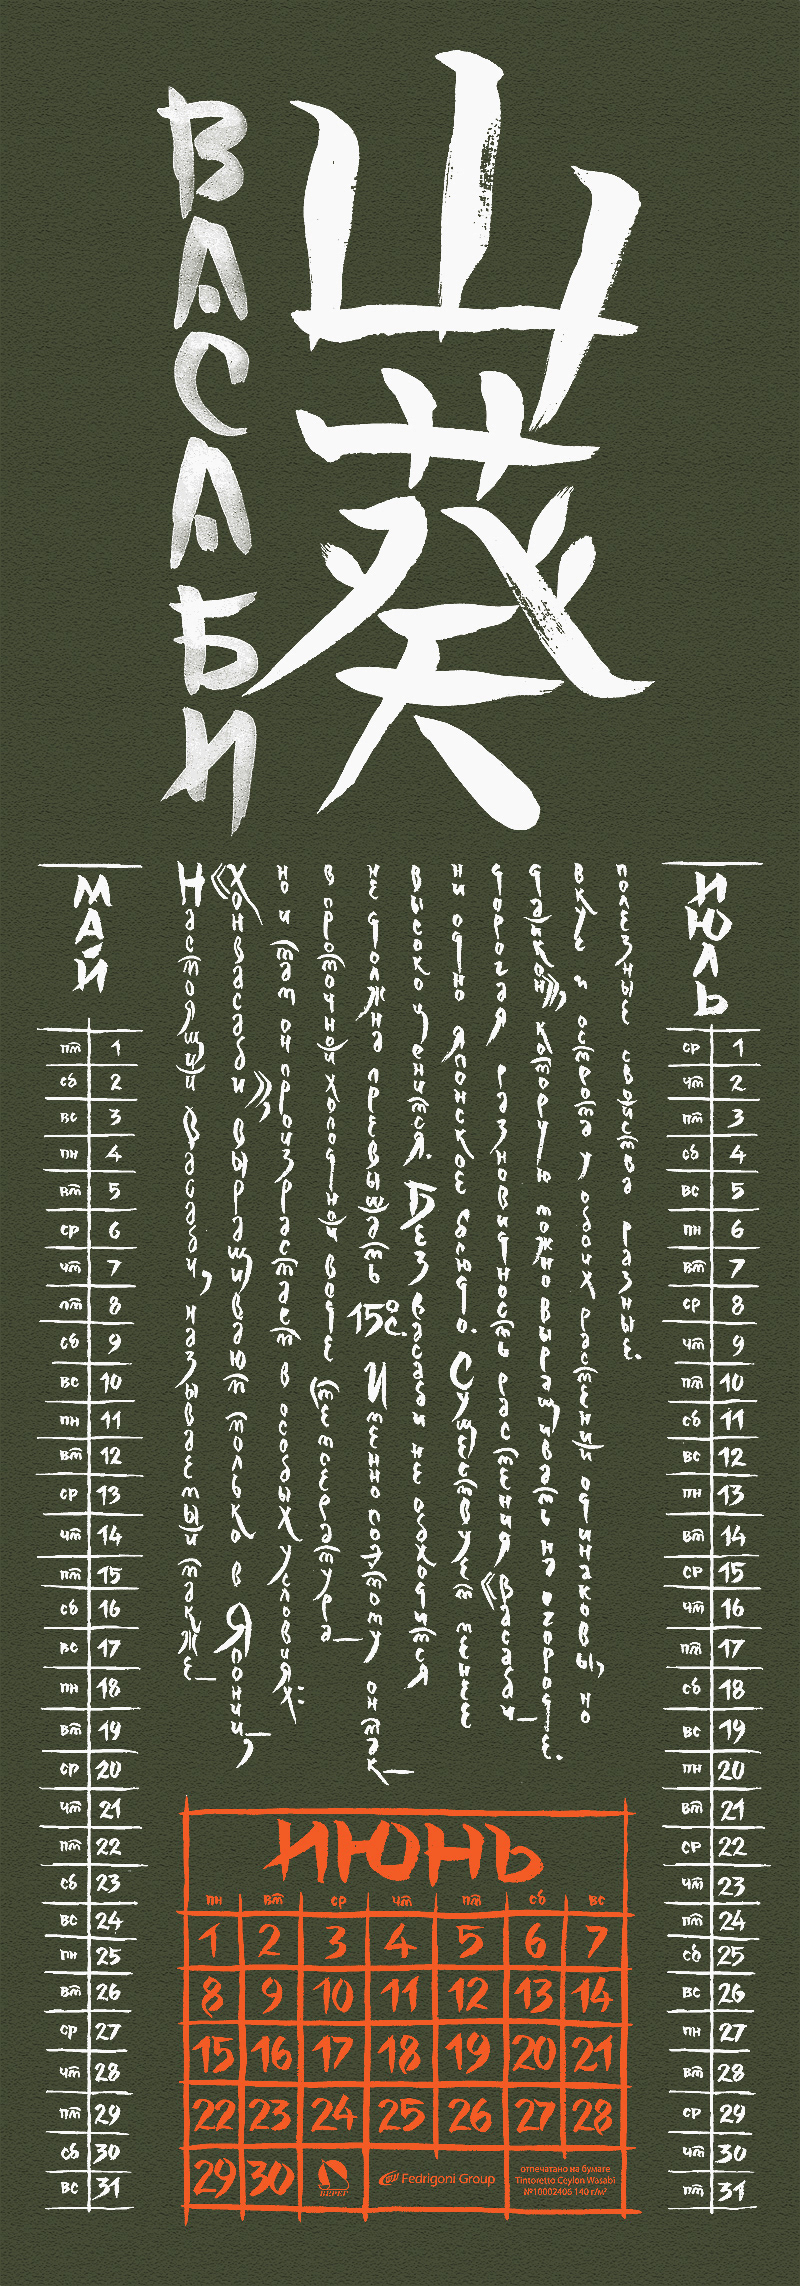 ВАСАБИ
山葵
Настоящий Васаби, называемый также—
«Хонвасаби», выращивают только в Японии,
но и там он произрастает в особых условиях:
в проточной холодной воде (температура—
не должна превышать 15°С. Именно поэтому он так—
высоко ценится. Без васаби не обходится
ни одно японское блюдо. Существует менее
дорогая разновидность растения «Васаби—
дайкон», которую можно выращивать на огороде.
вкус и острота у обоих растений одинаковы, но
полезные свойства разные.
МАЙ
пт 1
сб 2
вс 3
пн 4
вт 5
ср 6
чт 7
пт 8
сб 9
вс 10
пн 11
вт 12
ср 13
чт 14
пт 15
сб 16
вс 17
пн 18
вт 19
ср 20
чт 21
пт 22
сб 23
вс 24
пн 25
вт 26
ср 27
чт 28
пт 29
сб 30
вс 31
ИЮНЬ
пн вт ср чт пт сб вс
1 2 3 4 5 6 7
8 9 10 11 12 13 14
15 16 17 18 19 20 21
22 23 24 25 26 27 28
29 30
БЕРЕГ
Fedrigoni Group
отпечатано на бумаге
Tintoretto Ceylon Wasabi
№10002406 140 г/м²
ИЮЛЬ
ср 1
чт 2
пт 3
сб 4
вс 5
пн 6
вт 7
ср 8
чт 9
пт 10
сб 11
вс 12
пн 13
вт 14
ср 15
чт 16
пт 17
сб 18
вс 19
пн 20
вт 21
ср 22
чт 23
пт 24
сб 25
вс 26
пн 27
вт 28
ср 29
чт 30
пт 31